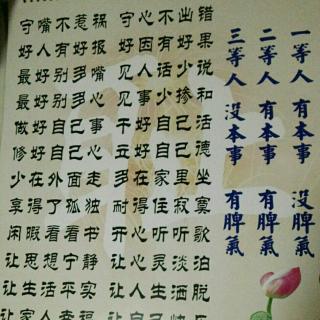 守嘴不惹祸 守心不出错
好人有好报 好因有好果
最好别多嘴 见人话少说
最好别多心 见事少掺和
做好自己事 干好自己活
修好自己心 立好自己德
少在外面走 多在家里坐
享得了孤独 耐得住寂寞
闲暇看看书 开心听听歌
让思想宁静 让心灵淡泊
让生活平实 让人生洒脱
让家人幸福
一等人 有本事 没脾氣
二等人 有本事 有脾氣
三等人 没本事 有脾氣